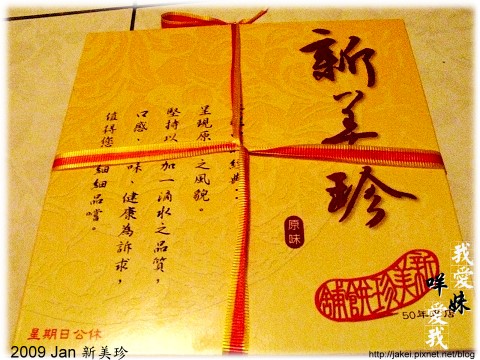 新美珍
原味
經典：
呈現原 之風貌。
堅持以 加一滴水之品質，
口感、 味、健康為訴求，
值得您 細細品嚐。
新美珍餅舖
50年 店
星期日公休
我愛妹
咩愛我
2009 Jan 新美珍
http://jakei.pixnet.net/blog